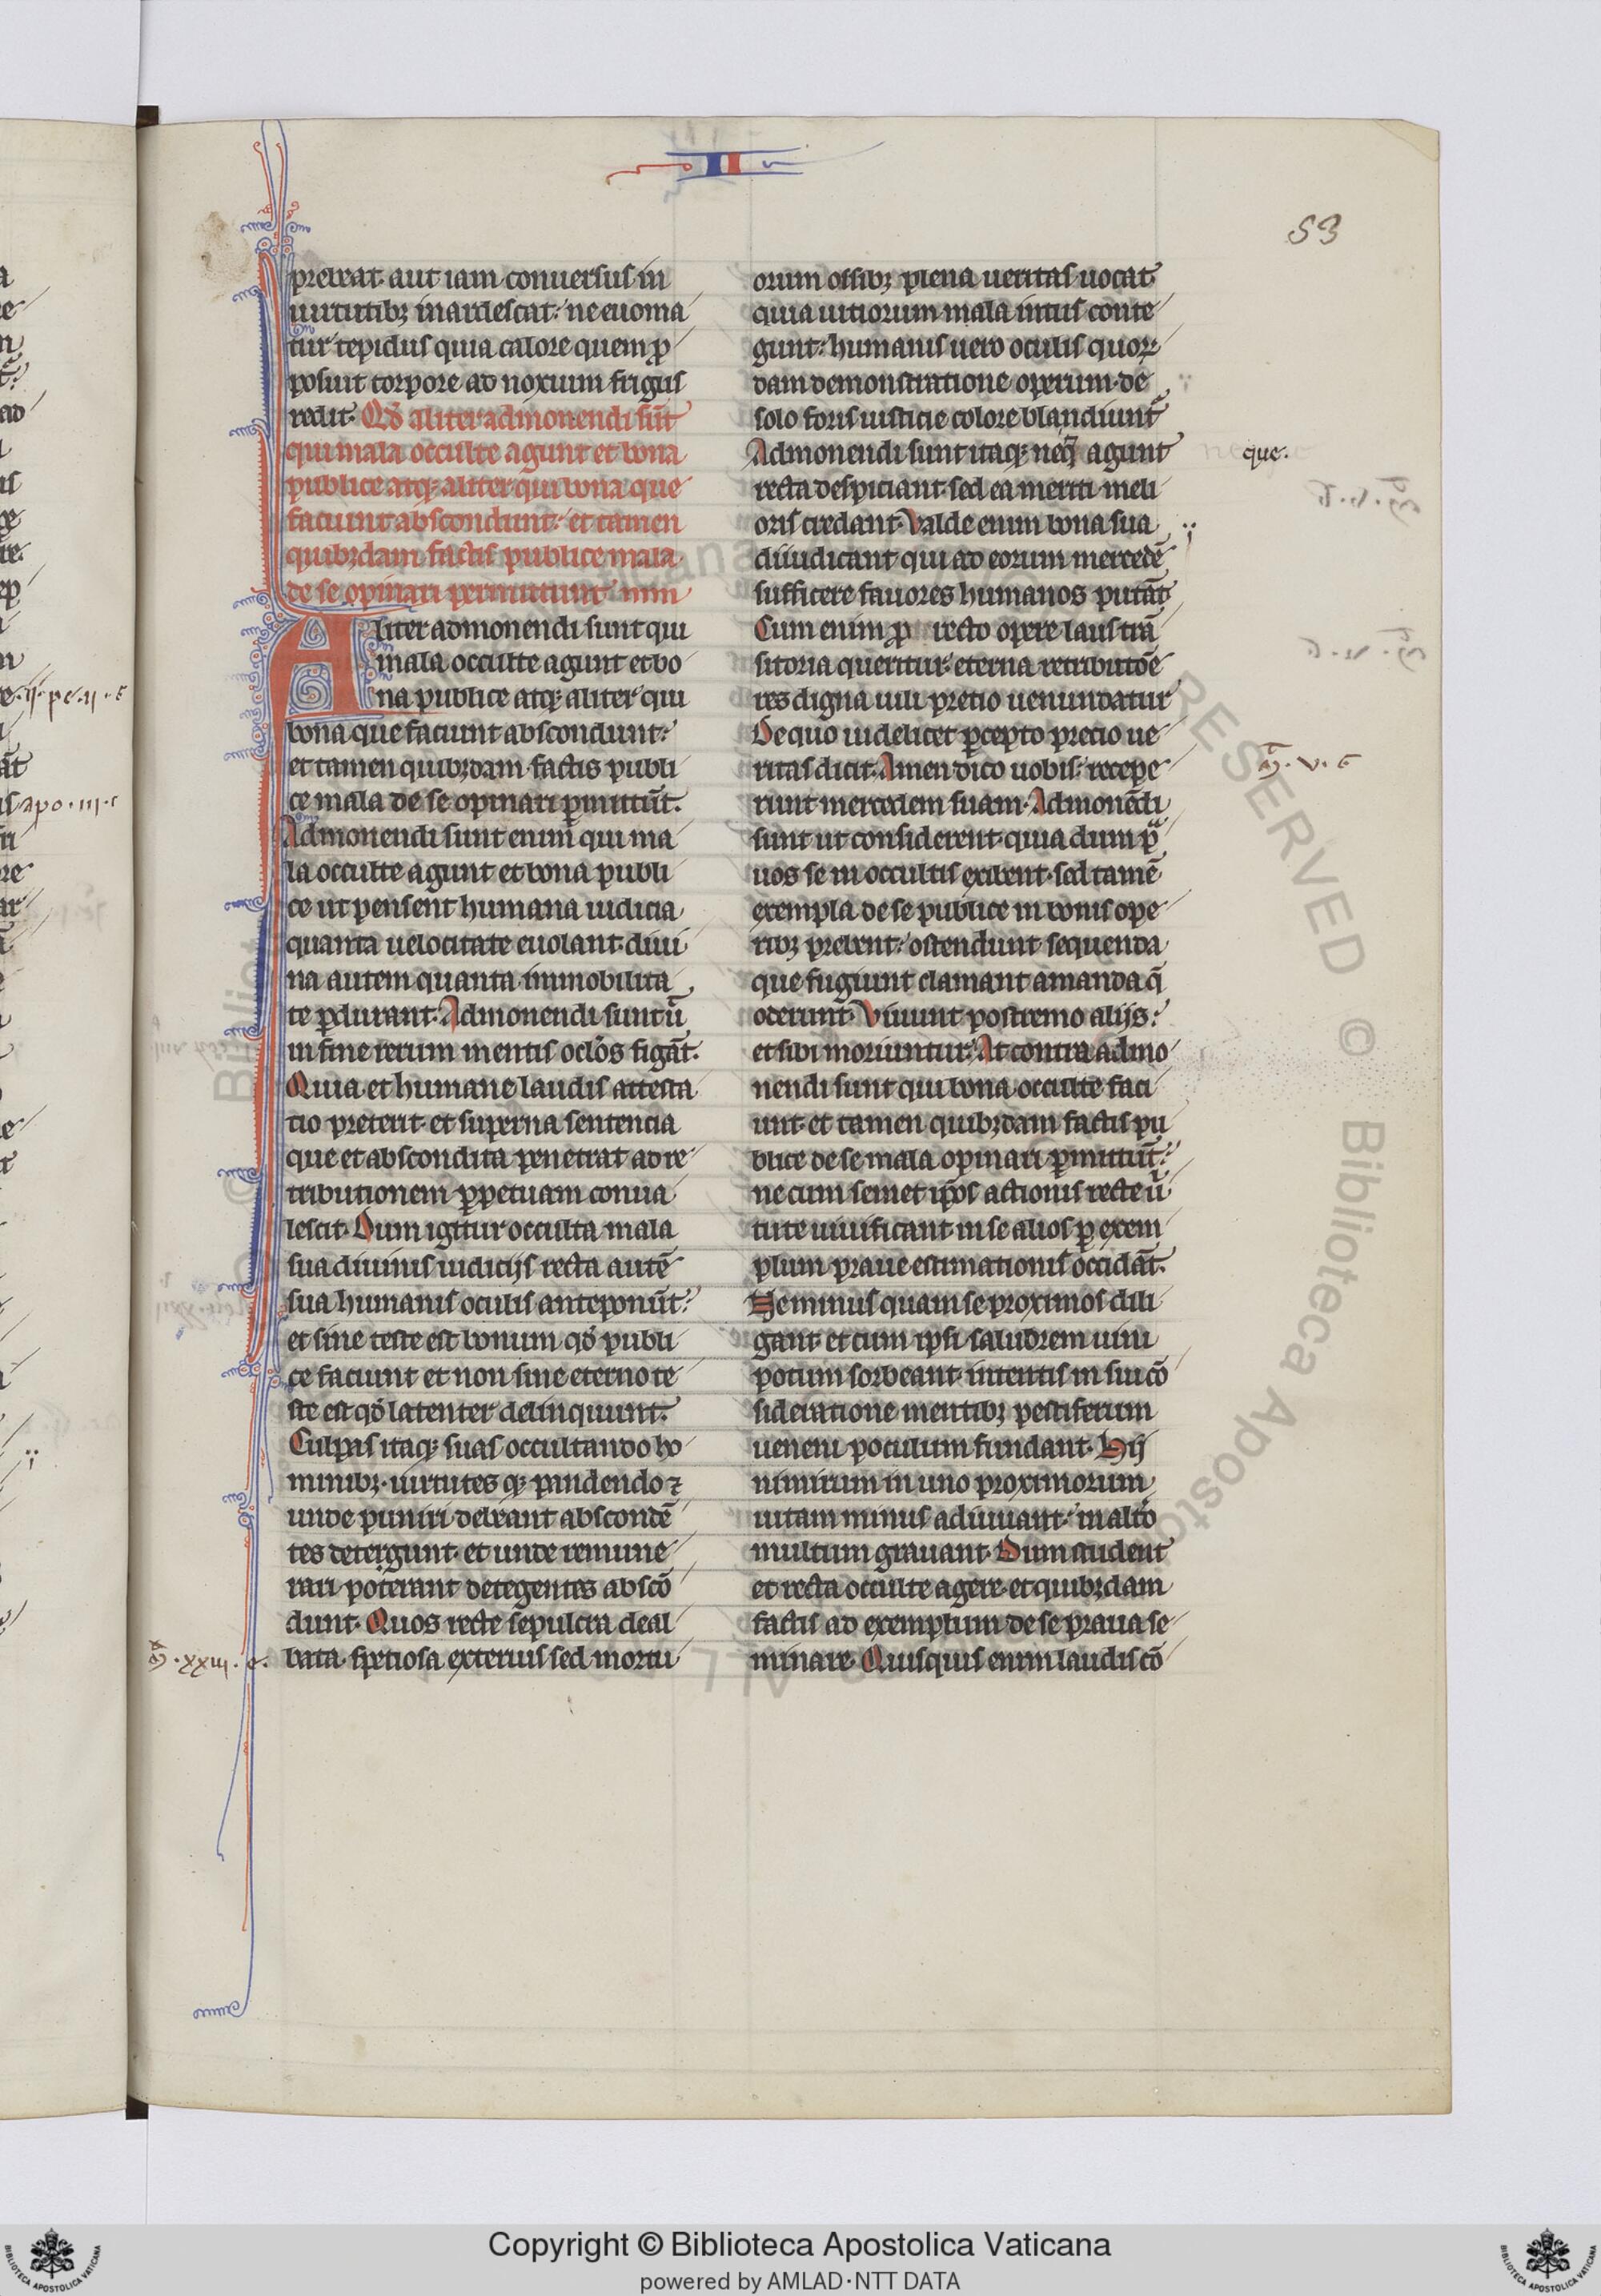 II
53
pretereat. aut iam conuersus in
uirtutibꝫ inardescat: ne euoma
tur tepidus quia calore quem ꝓ
posuit torpore ad noxium frigus
redit. Qd̓ aliter admonendi sūt
qui mala occulte agunt et bona
publice atqꝫ aliter qui bona que
faciunt abscondunt: et tamen
quibꝫdam factis publice mala
de se opinari permittunt. iiiii
Aliter admonendi sunt qui
mala occulte agunt et bo
na publice atqꝫ aliter qui
bona que faciunt abscondunt:
et tamen quibꝫdam factis publi
ce mala de se opinari ꝑmittūt.
Admonendi sunt enim qui ma
la occulte agunt et bona publi
ce ut pensent humana iudicia
quanta uelocitate euolant. diui
na autem quanta immobilita
te ꝑdurant. Admonendi sunt ū
in fine rerum mentis oclōs figāt.
Quia et humane laudis attesta
tio preterit. et superna sentencia
que et abscondita penetrat ad re
tributionem ꝑpetuam conua
lescit. Dum igitur occulta mala
sua diuinis iudicijs recta autē
sua humanis oculis anteponūt:
et sine teste est bonum qd̓ publi
ce faciunt et non sine eterno te
ste est qd̓ latenter delinquunt.
Culpas itaqꝫ suas occultando ho
minibꝫ. uirtutes qꝫ pandendo ⁊
unde puniri debeant abscondē
tes detergunt. et unde remune
rari poterant detegentes abscō
dunt. Quos recte sepulcra deal
bata. spetiosa exterius sed mortu
orum ossibꝫ plena ueritas uocat.
quia uitiorum mala intus conte
gunt: humanis uero oculis quoꝝ
dam demonstratione operum. de
solo foris iusticie colore blandiunt̄
Admonendi sunt itaqꝫ neq̄ agunt
recta despiciant. sed ea meriti meli
oris credant. Valde enim bona sua
diiudicant qui ad eorum mercedē
sufficere fauores humanos putāt.
Cum enim ꝓ recto opere laus trā
sitoria queritur: eterna retributōe
res digna uili pretio uenundatur
De quo uidelicet ꝑcepto precio ue
ritas dicit. Amen dico uobis: recepe
runt mercedem suam. Admonēdi
sunt ut considerent. quia dum pᵃ
uos se in occultis exibent. sed tamē
exempla de se publice in bonis ope
ribꝫ prebent: ostendunt sequenda
que fugiunt clamant amanda q̄
oderunt. Viuunt postremo alijs:
et sibi moriuntur. At contra admo
nendi sunt qui bona occulte faci
unt. et tamen quibꝫdam factis pu
blice de se mala opinari ꝑmittūt:
ne cum semet ip̄os actionis recte ū
tute uiuificant in se alios ꝑ exem
plum praue estimationis occidāt.
Ne minus quam se proximos dili
gant. et cum ipsi salubrem uini
potum sorbeant. intentis in sui cō
sideratione mentibꝫ pestiferum
ueneni poculum fundant. Hij
nimirum in uno proximorum
uitam minus adiuuant: in altō
multum grauant. Dum student
et recta occulte agere. et quibꝫdam
factis ad exemplum de se praua se
minare. Quisquis enim laudis cō
que.
.v. c
.xxiii. e.
Copyright © Biblioteca Apostolica Vaticana
powered by AMLAD·NTT DATA